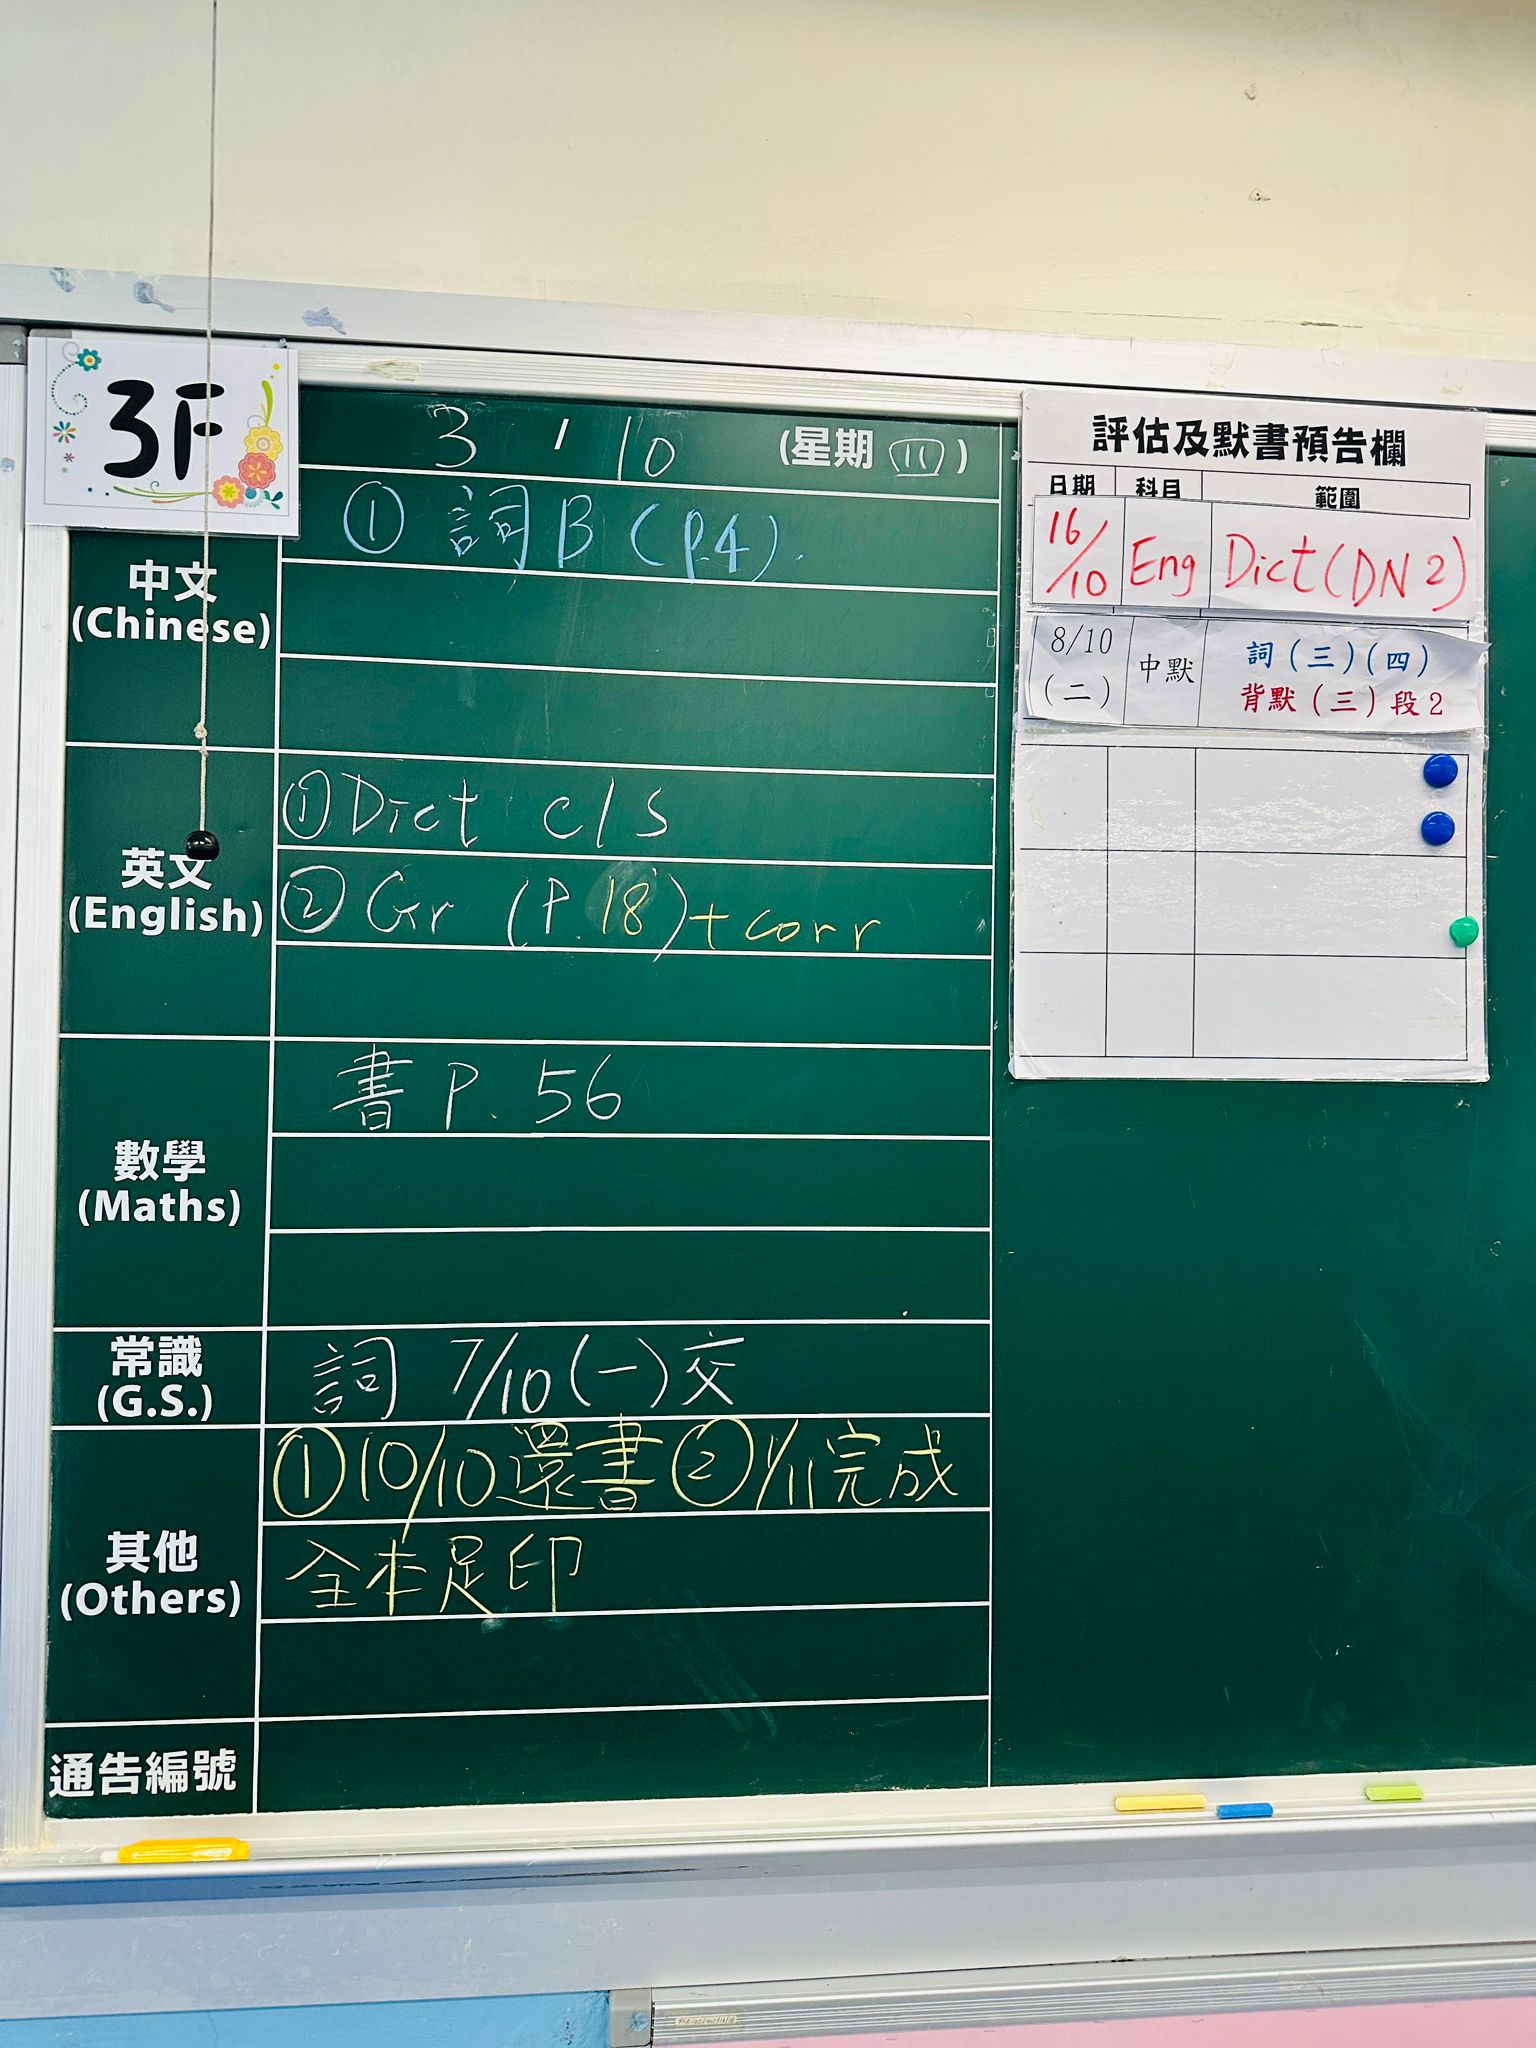 3F
3 / 10 (星期四)
中文
(Chinese)
① 詞B (P.4)
英文
(English)
① Dict c/s
② Gr (P.18) + corr
數學
(Maths)
書 P.56
常識
(G.S.)
詞 7/10 (一) 交
其他
(Others)
① 10/10 還書 ② 1/11 完成
全本足印
通告編號
評估及默書預告欄
日期 科目 範圍
16/10 Eng Dict (DN 2)
8/10 (二) 中默 詞(三)(四)
背默(三)段2